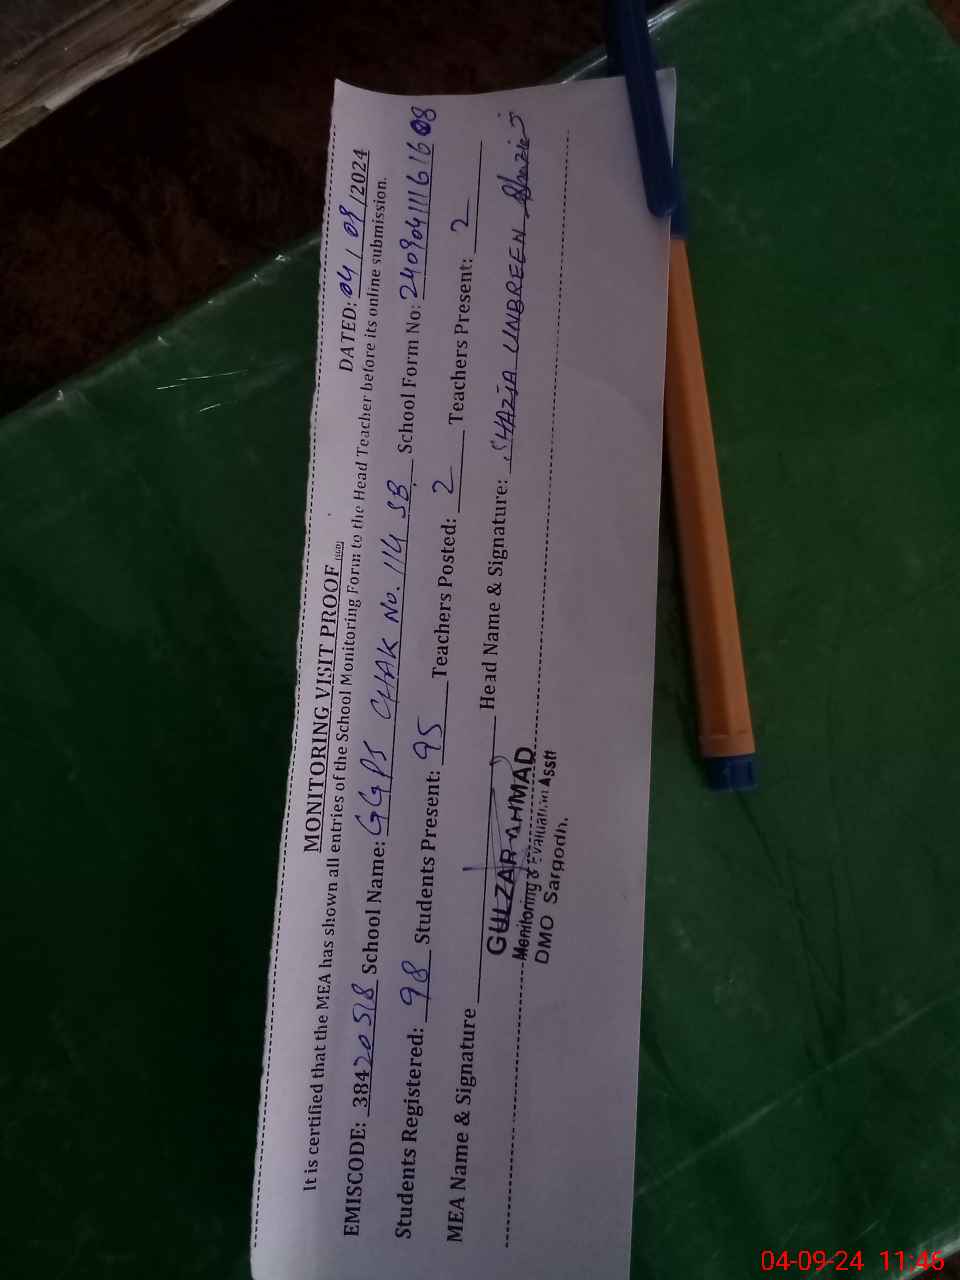 MONITORING VISIT PROOF (SED) DATED: 04/09/2024
It is certified that the MEA has shown all entries of the School Monitoring Form to the Head Teacher before its online submission.
EMISCODE: 38420518 School Name: GGPS CHAK No. 114 SB. School Form No: 24090411161608
Students Registered: 98 Students Present: 95 Teachers Posted: 2 Teachers Present: 2
MEA Name & Signature Head Name & Signature: SHAZIA UNBREEN Shazia
GULZAR AHMAD
Monitoring & Evaluation Asstt
DMO Sargodh.
04-09-24 11:46